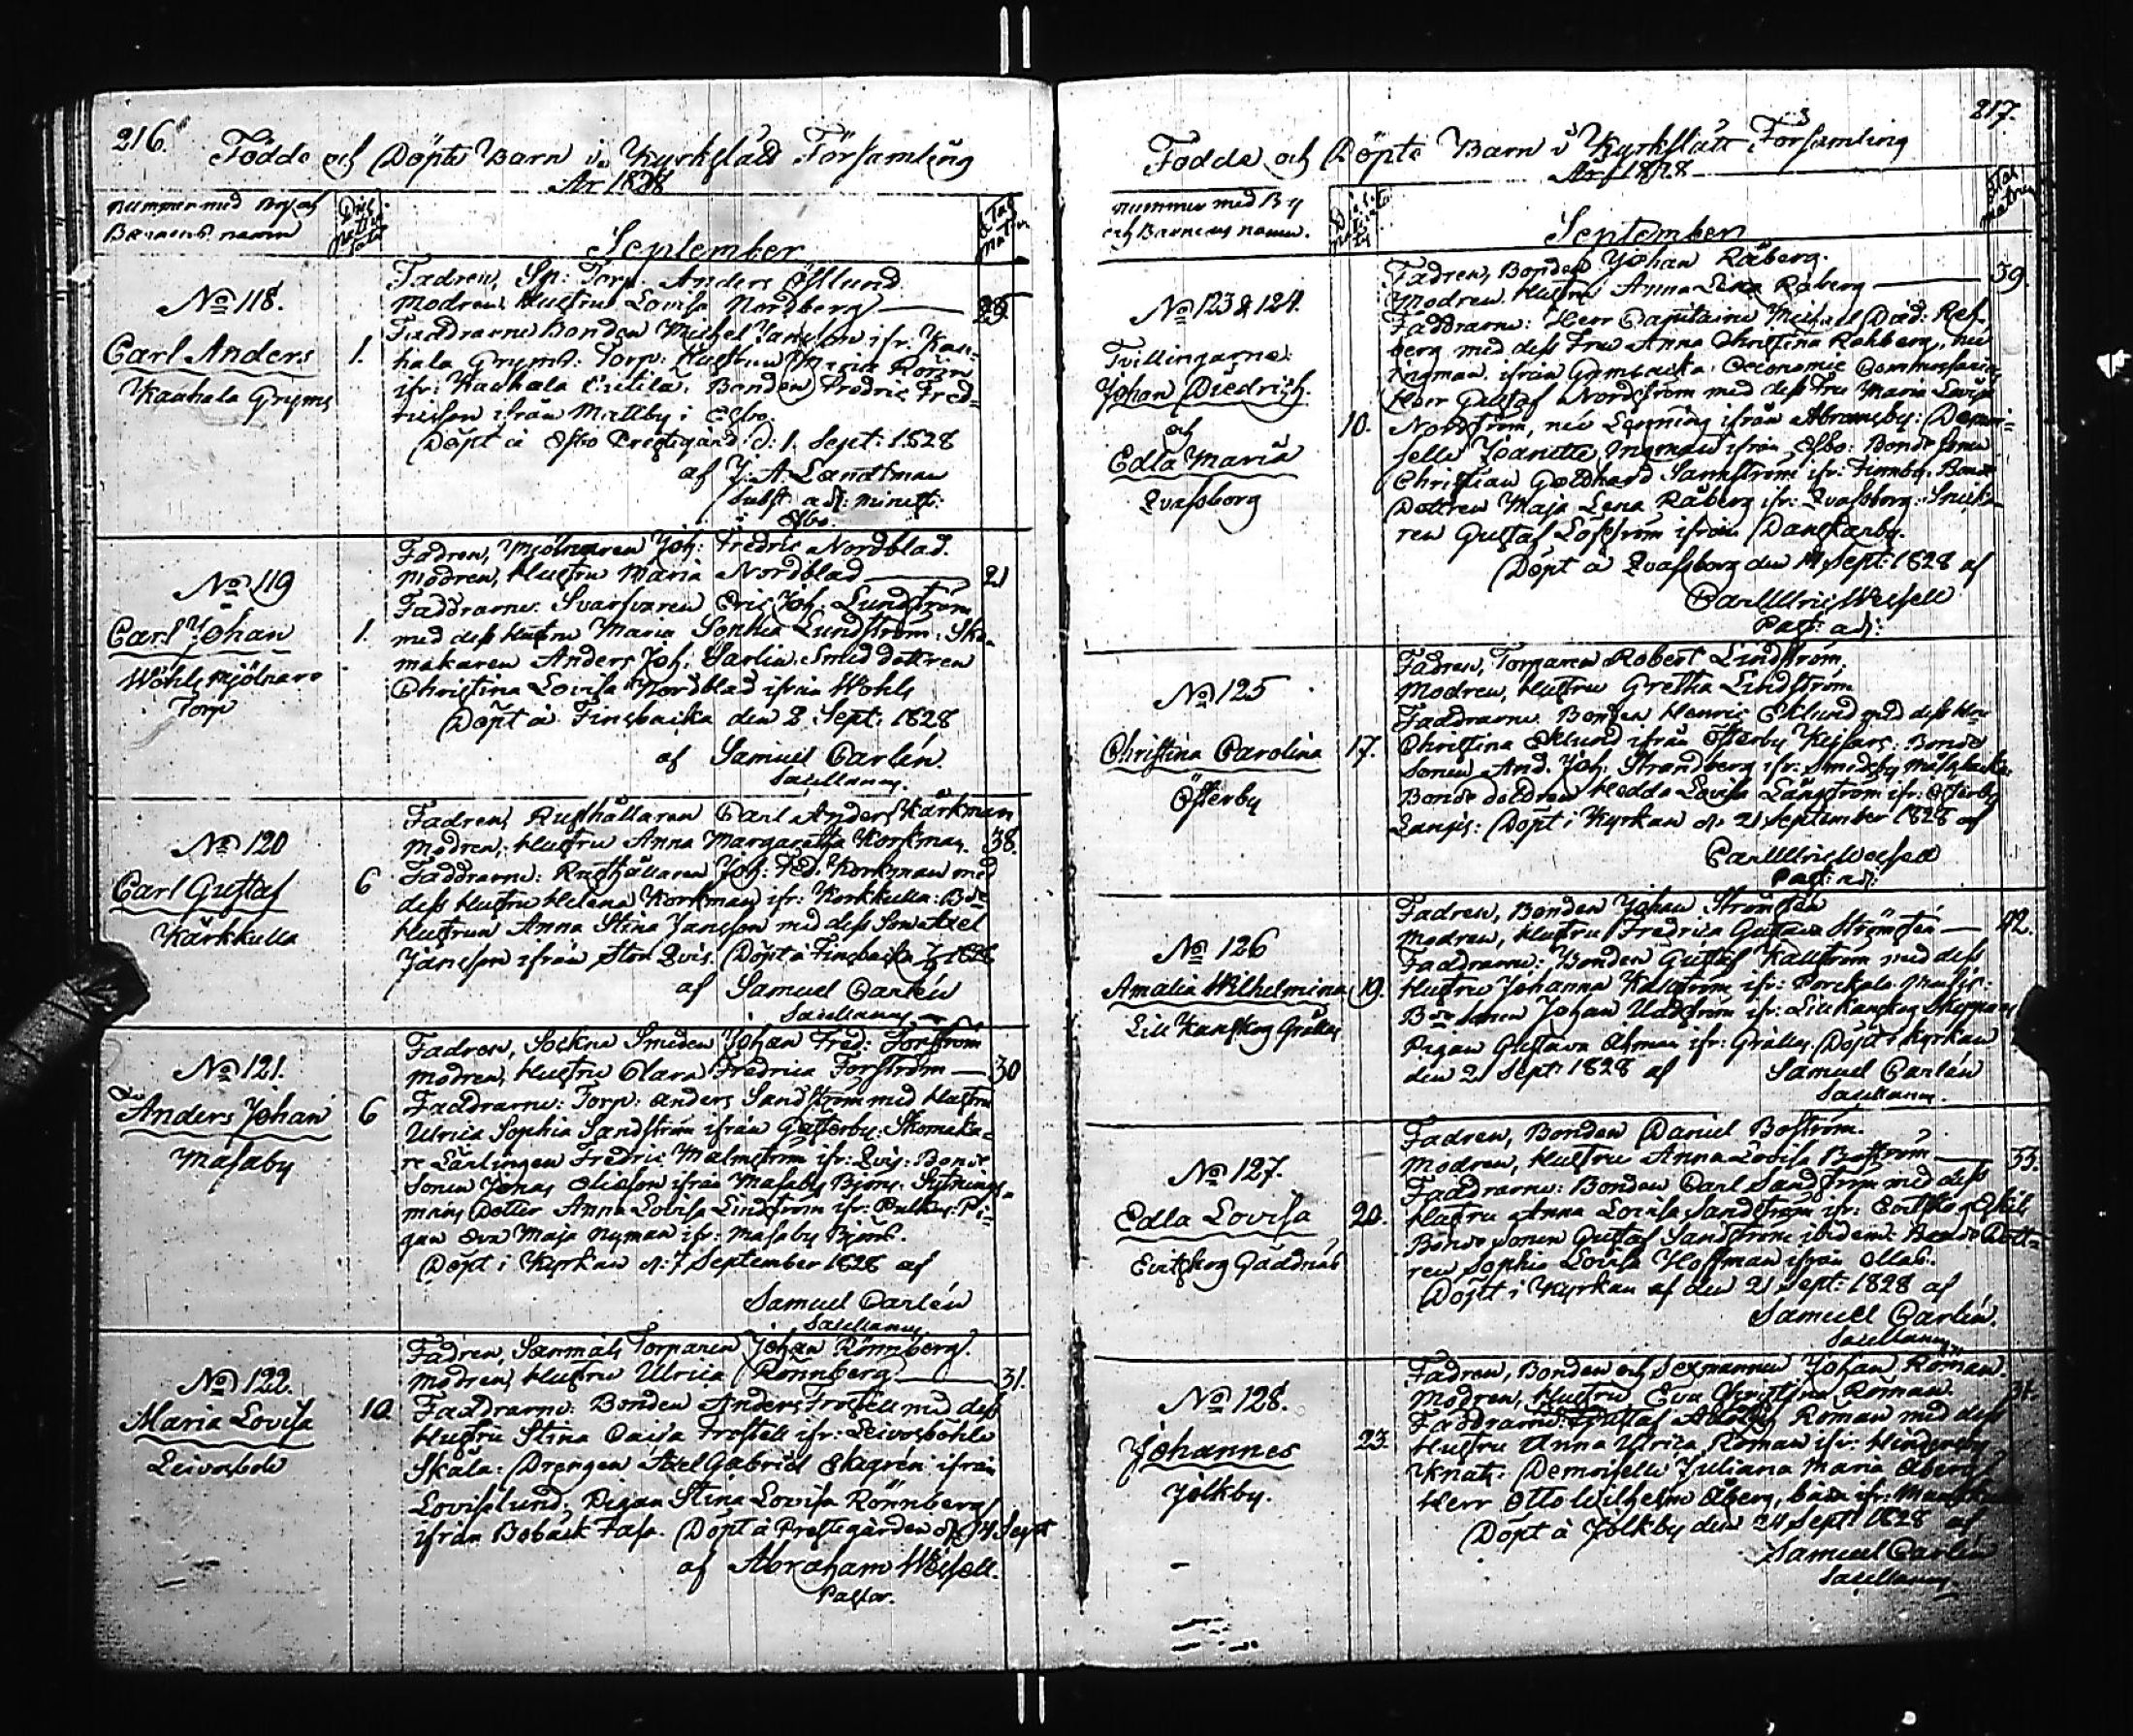 216.
Födde och Döpte Barn i Kyrkslätt Församling
År 1828
nummer med By och
Barnens namn
September
No 118.
Carl Anders
Kauhala Gryms
1.
Fadren, Sp: Torp: Anders Östlund
Modren, Hustru Lovisa Nordberg
Faddrarne Bonden Michel Jansson ifr: Kau-
hala Gryms: Torp: Hustrun
ifr: Kauhala Bonden Fredric Fred-
ricsson ifrån Mattby i Esbo.
Döpt å Esbo Prestgård d: 1. Sept: 1828
af J. A. Landtman
subst: adj: minist:
Esbo.
No 119
Carl Johan
Wohls Mjölnare
Torp
1.
Fadren, Mjölnaren Joh: Fredric Nordblad.
Modren, Hustru Maria Nordblad
21
Faddrarne: Svarfvaren Eric Joh: Lundström
med dess Hustru Maria Sophia Lundström: Sko-
makaren Anders Joh: Sarlin: Smeddottren
Christina Lovisa Nordblad ifrån Wohls
Döpt å Finsbacka den 2 Sept: 1828
af Samuel Carlén.
Sacellanus.
No 120
Carl Gustaf
Kårkkulla
6
Fadren, Rusthållaren Carl Anders Kårkman
Modren, Hustru Anna Margaretha Korkman.
38.
Faddrarne: Rusthållaren Joh: Fed: Korkman med
dess Hustru Helena Korkman ifr: Korkkulla: Bde
Hustrun Anna Stina Jansson med dess Son Axel
Jansson ifrån Stor Qvis. Döpt å Finsbacka 1828
af Samuel Carlén
Sacellanus
No 121.
Anders Johan
Masaby
6
Fadren, Sockne Smeden Johan Fred: Forsström
Modren, Hustru Clara Fredrica Forsström
30
Faddrarne: Torp: Anders Sandström med Hustru
Ulrica Sophia Sandström ifrån Gesterby: Skomaka-
re Lärlingen Fredric Malmström ifr: Qvis: Bonde
Sonen Jonas Eliasson ifrån Masaby Björs: Sytnings-
mans Dotter Anna Lovisa Lindström ifr: Pi-
gan Eva Maja Nyman ifr: Masaby Björs.
Döpt i Kyrkan d: 7 September 1828 af
Samuel Carlén
Sacellanus
No 122.
Maria Lovisa
Leivosböle
10
Fadren, Torparen Johan Rönnberg.
Modren, Hustru Ulrica Rönnberg
31.
Faddrarne: Bonden Anders Frostell med dess
Hustru Stina Caisa Frostell ifr: Leivosböhle
Skåla: Drengen Axel Gabriel Ekegrén ifrån
Lovisalund: Pigan Stina Lovisa Rönnberg
ifrån Bobäck Döpt å Prestgården d: 14 Sept
af Abraham Wefsell.
Pastor.
217.
Födde och Döpte Barn i Kyrkslätt Församling
År 1828
nummer med By
och Barnens namn.
September
No 123 & 124.
Tvillingarne:
Johan Diedrich.
och
Edla Maria
Qvafsborg
10.
Fadren, Bonden Johan Råberg.
Modren, Hustru Anna Lisa Råberg
39.
Faddrarne: Herr Capitaine Michael Did: Reh-
berg med dess Fru Anna Christina Rehberg, née
Ingman ifrån Oeconomie Commissarien
Herr Gustaf Nordström med dess Fru Maria Lovisa
Nordström, née Lenning ifrån Abramsby: Demoi-
selle Ingman ifrån Esbo: Bonde Sonen
Christian Gotthard Sannström ifr: Finnby: Bonde
Dottren Maja Lena Råberg ifr: Qvafsborg:
ren Gustaf Löfström ifrån Danskarby.
Döpt å Qvafsborg den 14 Sept: 1828 af
Carl Ulric Wefsell
Past: adj:
No 125
Christina Carolina
Österby
17.
Fadren, Torparen Robert Lindström.
Modren, Hustru Gretha Lindström
Faddrarne Bonden Henric Eklund med dess Hu
Christina Eklund ifrån Österby Kejsars: Bonde
Sonen And. Joh: Strandberg ifr: Smedsby
Bonde dottren Hedda Lovisa Långström ifr: Österby
Långis: Döpt i Kyrkan d: 21 September 1828 af
Carl Ulric Wefsell
Past: adj:
No 126
Amalia Wilhelmina
Lill Kanskog Grålls
19.
Fadren, Bonden Johan Strömstén
Modren, Hustru Fredrica Gustava Strömstén
42.
Faddrarne: Bonden Gustaf Kallström med dess
Hustru Johanna Kallström ifr: Porckala
Bde Sonen Johan Uddström ifr: Lill Kanskog
Pigan Gustava Öhman ifr: Grålls. Döpt i Kyrkan
den 21 Sept: 1828 af Samuel Carlén
Sacellanus.
No 127.
Edla Lovisa
Evitskog Gäddnäs
20.
Fadren, Bonden Daniel Boström.
Modren, Hustru Anna Lovisa Boström
33.
Faddrarne: Bonden Carl Sandström med dess
Hustru Anna Lovisa Sandström ifr: Evitskog Eskils
Bonde Sonen Gustaf Sandström ibidem: Bonde Dott-
ren Sophia Lovisa Hoffman ifrån Ollas.
Döpt i Kyrkan af den 21 Sept: 1828 af
Samuel Carlén.
Sacellanus
No 128.
Johannes
Jolkby.
23.
Fadren, Bonden och Sexmannen Johan Roman.
Modren, Hustru Eva Christina Roman.
31.
Faddrarne: Gustaf Adolph Roman med dess
Hustru Anna Ulrica Roman ifr: Hindersby
Knats: Demoiselle Juliana Maria Åberg
Herr Otto Wilhelm Åberg, båda ifr:
Döpt å Jolkby den 24 Sept: 1828 af
Samuel Carlén
Sacellanus.